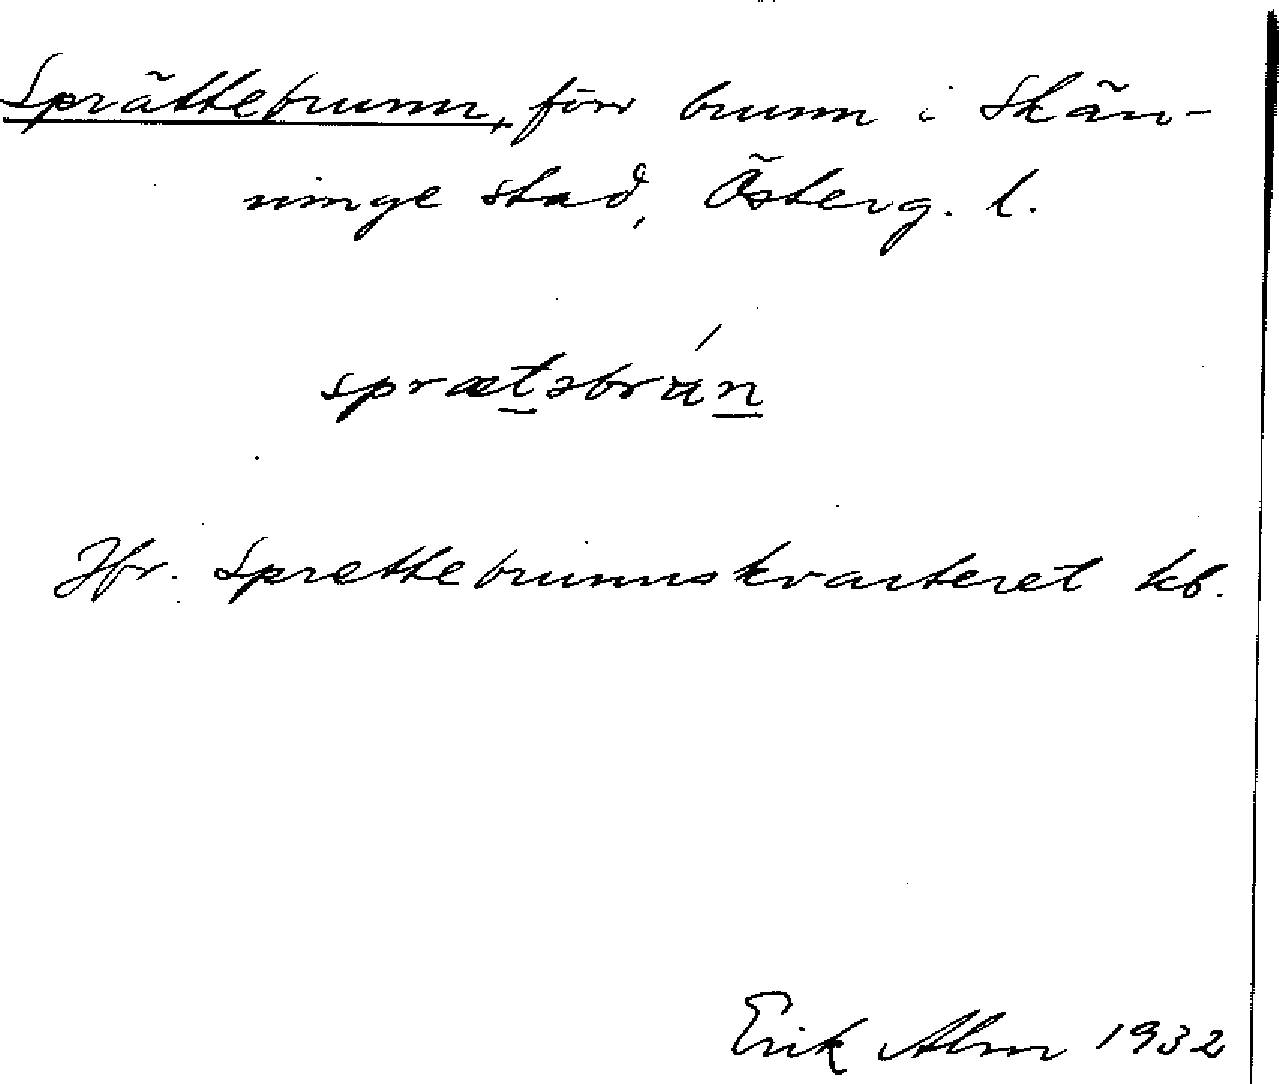 Sprättebrunn, förr brunn i Skän-
ninge stad, Österg. l.
Jfr. Sprettebrunnskvarteret kb.
Erik Alm 1932